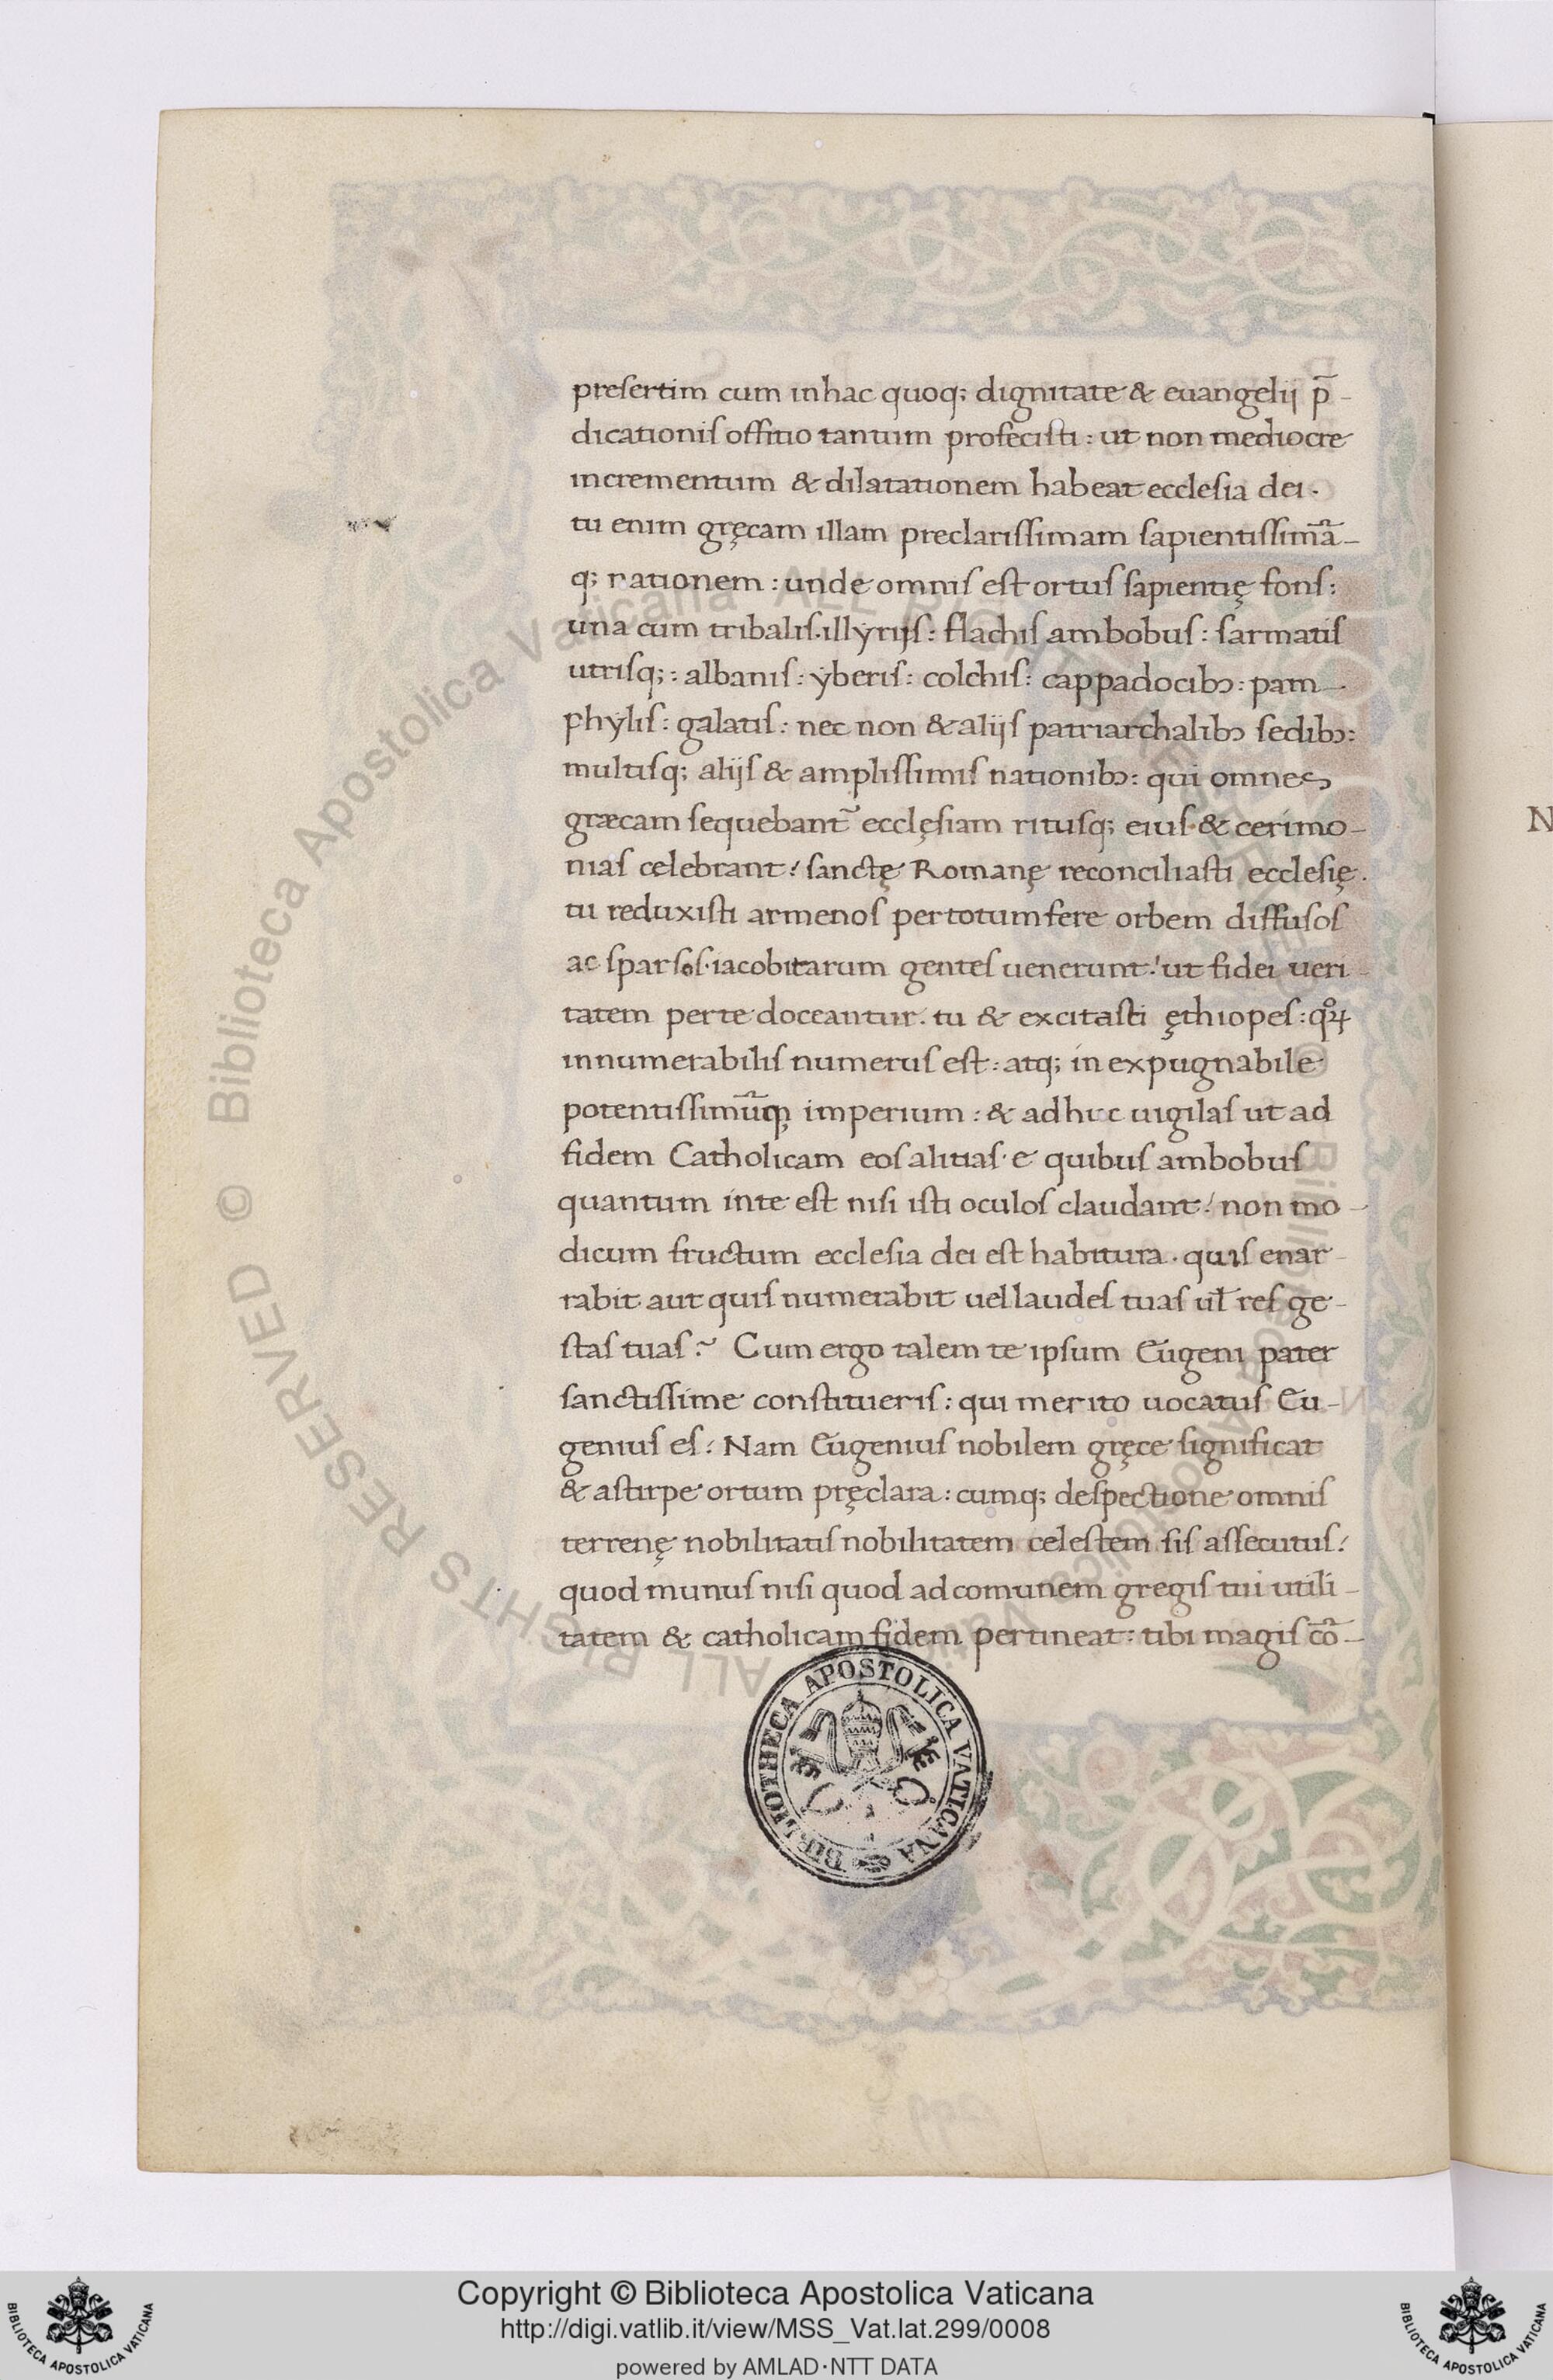 preſertim cum inhac quoq; dignitate & euangelij p̄-
dicationiſ offitio tantum profeciſti : ut non mediocre
incrementum & dilatationem habeat eccleſia dei ·
tu enim gręcam illam preclariſſimam ſapientiſſimā-
q; rationem : unde omniſ eſt ortuſ ſapientię fonſ :
una cum tribaliſ·illẏrijſ : flachiſ ambobuſ : ſarmatiſ
utriſq; : albaniſ : ẏberiſ : colchiſ : cappadocibꝰ : pam-
phẏliſ : galatiſ : nec non & alijſ patriarchalibꝰ ſedibꝰ :
multiſq; alijſ & ampliſſimiſ nationibꝰ : qui omnes
græcam ſequebant᷑ ecclęſiam rituſq; eiuſ · & cerimo-
niaſ celebrant : ſanctę Romanę reconciliaſti eccleſię .
tu reduxiſti armenoſ per totum fere orbem diffuſoſ
ac ſparſoſ · iacobitarum genteſ uenerunt : ut fidei ueri-
tatem perte doceantur . tu & excitaſti ęthiopeſ : qͦꝝ
innumerabiliſ numeruſ eſt : atq; in expugnabile
potentiſſimūq; imperium : & adhuc uigilaſ ut ad
fidem Catholicam eoſ alitiaſ · e quibuſ ambobuſ
quantum inte eſt niſi iſti oculoſ claudant : non mo-
dicum fructum eccleſia dei eſt habitura · quiſ enar-
rabit aut quiſ numerabit uel laudeſ tuaſ ul̄ reſ ge-
ſtaſ tuaſ ? Cum ergo talem te ipſum Eugeni pater
ſanctiſſime conſtitueriſ : qui merito uocatuſ Eu-
geniuſ eſ : Nam Eugeniuſ nobilem gręce ſignificat
& aſtirpe ortum pręclara : cumq; deſpectione omniſ
terrenę nobilitatiſ nobilitatem celeſtem ſiſ aſſecutuſ :
quod munuſ niſi quod ad comunem gregiſ tui utili-
tatem & catholicam fidem pertineat : tibi magiſ cō-
BIBLIOTHECA APOSTOLICA VATICANA
N
Biblioteca Apostolica Vaticana ALL RIGHTS RESERVED ©
Copyright © Biblioteca Apostolica Vaticana
http://digi.vatlib.it/view/MSS_Vat.lat.299/0008
powered by AMLAD·NTT DATA
BIBLIOTECA APOSTOLICA VATICANA
BIBLIOTECA APOSTOLICA VATICANA